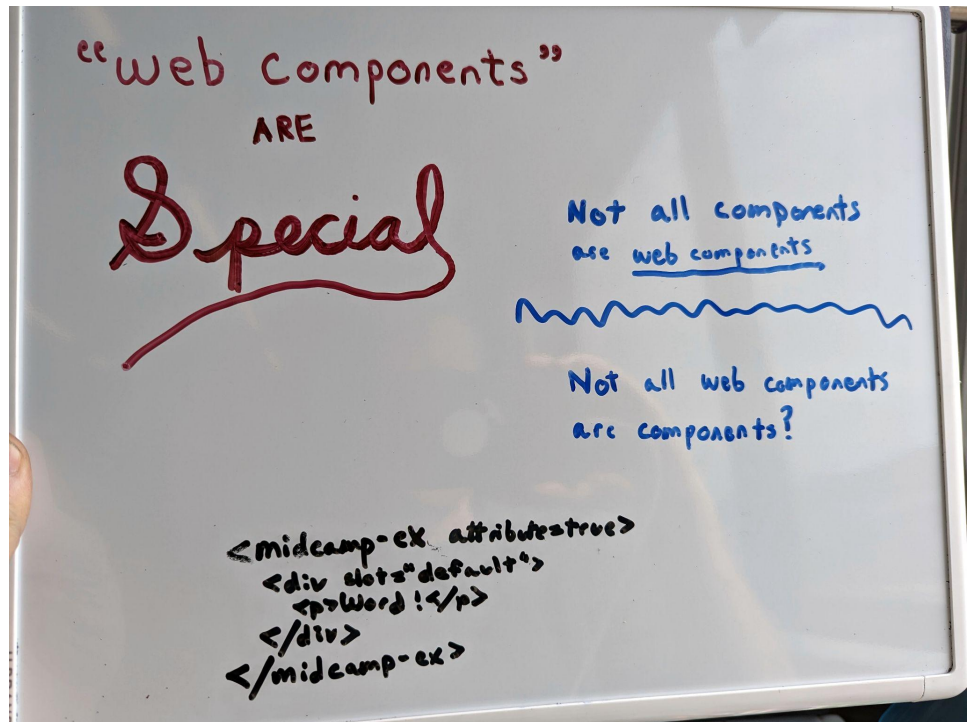 “web components”
ARE
Special
Not all components
are web components
Not all web components
are components?
<midcamp-ex attribute=true>
<div slot="default">
<p>Word!</p>
</div>
</midcamp-ex>